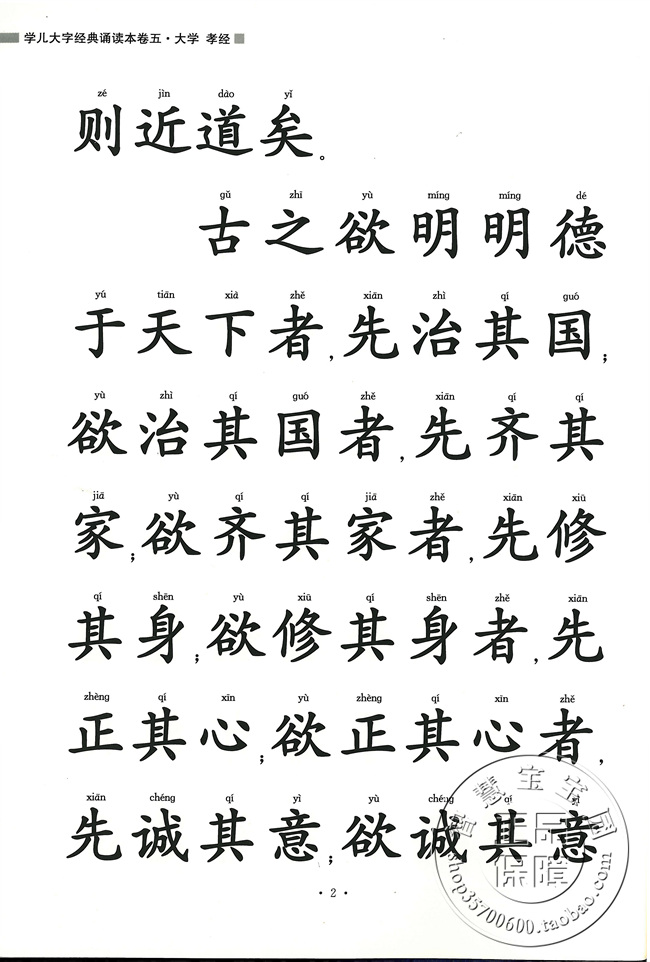 学儿大字经典诵读本卷五·大学 孝经
zé jìn dào yǐ
则近道矣。
gǔ zhī yù míng míng dé
古之欲明明德
yú tiān xià zhě xiān zhì qí guó
于天下者,先治其国;
yù zhì qí guó zhě xiān qí qí
欲治其国者,先齐其
jiā yù qí qí jiā zhě xiān xiū
家;欲齐其家者,先修
qí shēn yù xiū qí shēn zhě xiān
其身;欲修其身者,先
zhèng qí xīn yù zhèng qí xīn zhě
正其心;欲正其心者,
xiān chéng qí yì yù chéng qí yì
先诚其意;欲诚其意
·2·
宝宝园
正品
保障
shop35700600.taobao.com